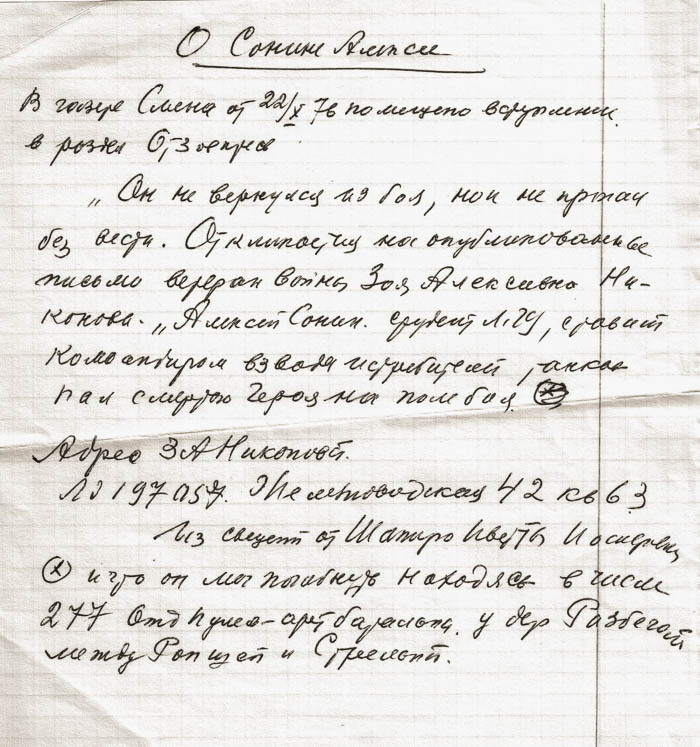 О Сонине Алексее
В газете Смена от 22/X 76 помещено вступление
в раздел
„Он не вернулся из боя, но и не пропал
без вести. Откликается на опубликованные
письмо ветеран войны Зоя Алексеевна Ни-
конова. „Алексей Сонин. студент ЛГУ,
командиром взвода истребителей танков
пал смертью Героя на поле боя (х)
Адрес З А Никоновой.
197057. 42 кв 63
Из от Шапиро Иосифовны
(х) и что он мог погибнуть находясь в числе
277 отд пулем-арт батальона. у дер Разбегай
между Ропшей и Стрельной.